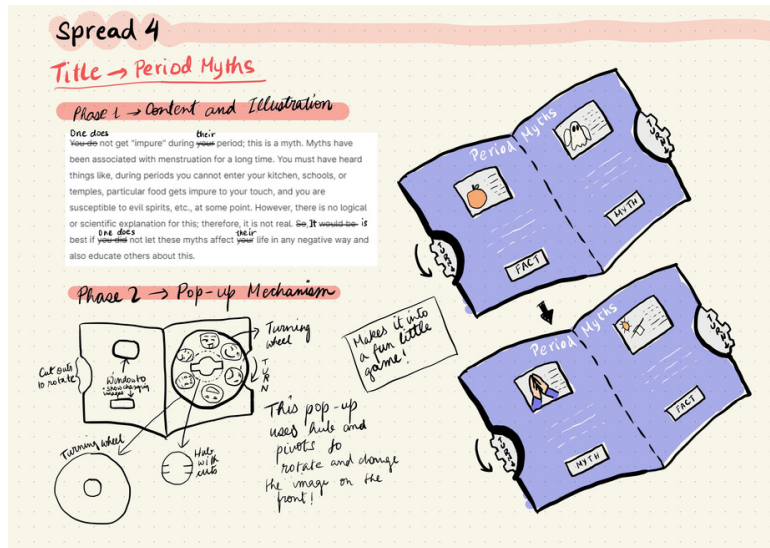 Spread 4
Title → Period Myths
Phase 1 → Content and Illustration
One does their
You do not get "impure" during your period; this is a myth. Myths have
been associated with menstruation for a long time. You must have heard
things like, during periods you cannot enter your kitchen, schools, or
temples, particular food gets impure to your touch, and you are
susceptible to evil spirits, etc., at some point. However, there is no logical
or scientific explanation for this; therefore, it is not real. So, It would be is
one does their
best if you did not let these myths affect your life in any negative way and
also educate others about this.
Phase 2 → Pop-up Mechanism
Cut outs
to rotate
Window to
show changing
images
Turning
wheel
TURN
Turning wheel
Hub
with
cuts
This pop-up
uses hub and
pivots to
rotate and change
the image on the
front!
Makes it into
a fun little
game!
Period Myths
TURN
FACT
MYTH
TURN
Period Myths
TURN
MYTH
FACT
TURN